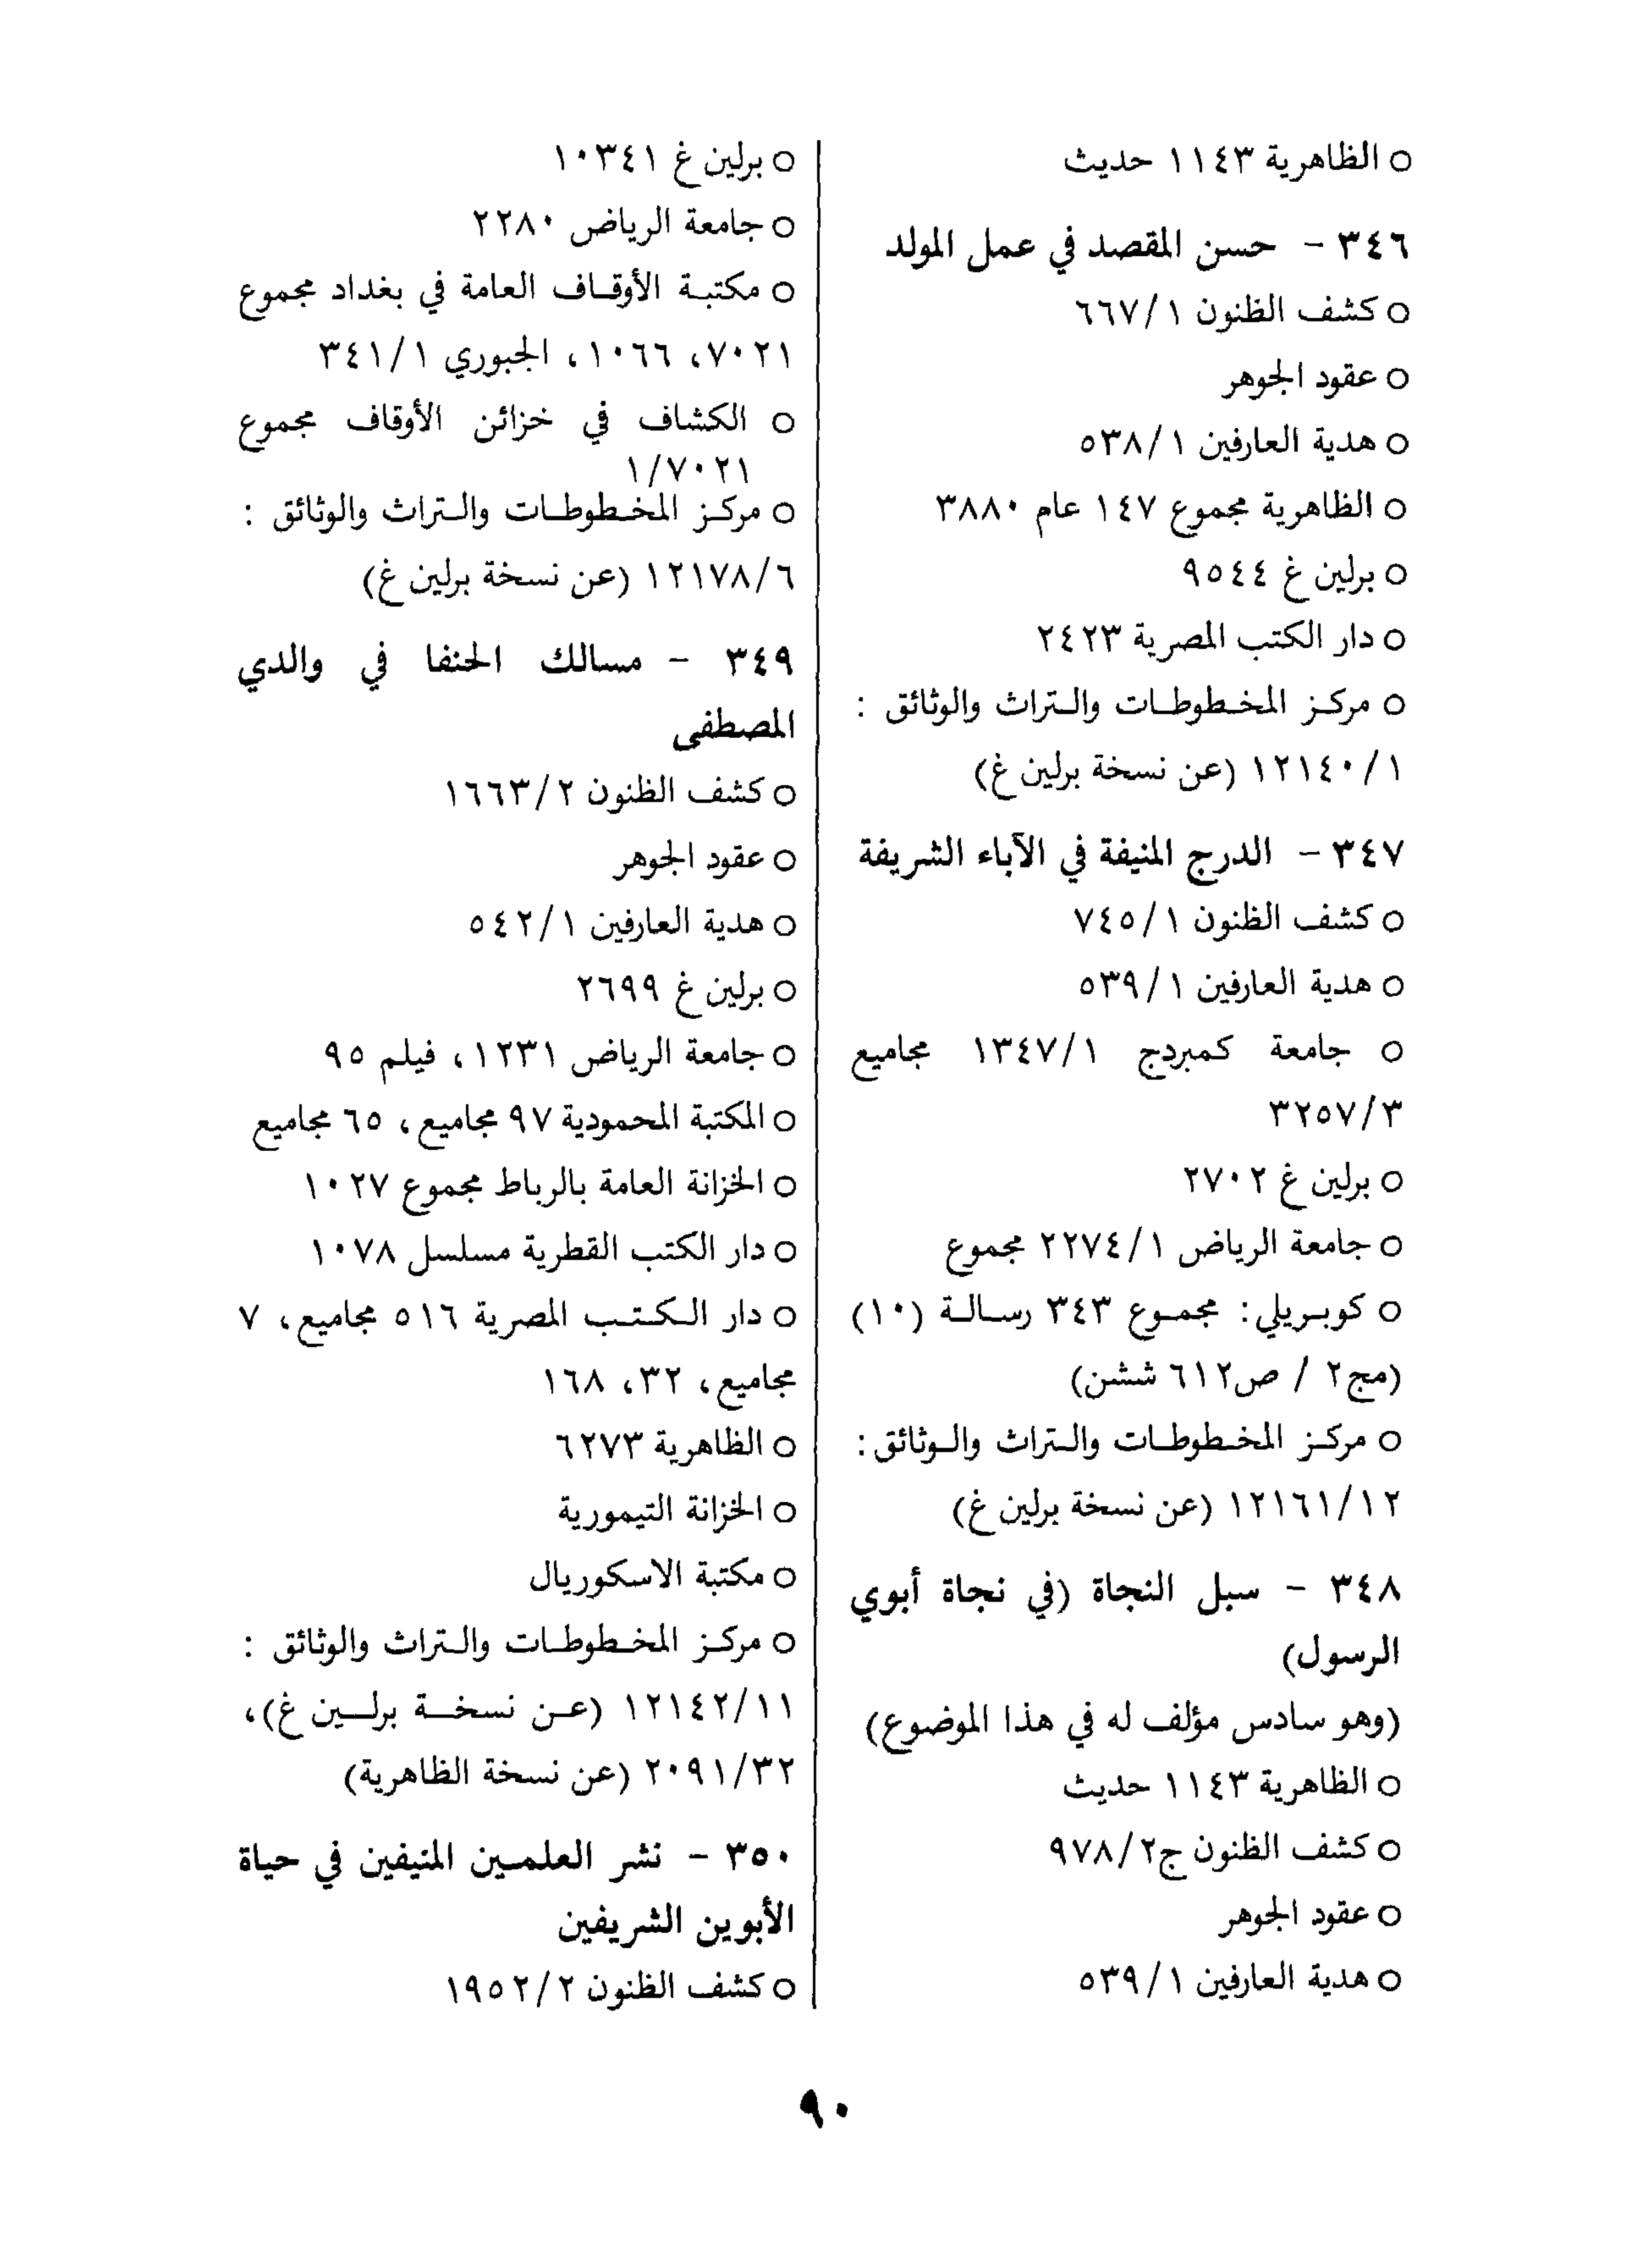 ○ الظاهرية ١١٤٣ حديث
٣٤٦ - حسن المقصد في عمل المولد
○ كشف الظنون ١/ ٦٦٧
○ عقود الجوهر
○ هدية العارفين ١/ ٥٣٨
○ الظاهرية مجموع ١٤٧ عام ٣٨٨٠
○ برلين غ ٩٥٤٤
○ دار الكتب المصرية ٢٤٢٣
○ مركز المخطوطات والتراث والوثائق :
١٢١٤٠/١ (عن نسخة برلين غ)
٣٤٧ - الدرج المنيفة في الآباء الشريفة
○ كشف الظنون ١/ ٧٤٥
○ هدية العارفين ١/ ٥٣٩
○ جامعة كمبردج ١٣٤٧/١ مجاميع
٣٢٥٧/٣
○ برلين غ ٢٧٠٢
○ جامعة الرياض ٢٢٧٤/١ مجموع
○ كوبريلي: مجموع ٣٤٣ رسالة (١٠)
(مج٢ / ص٦١٢ ششن)
○ مركز المخطوطات والتراث والوثائق:
١٢١٦١/١٢ (عن نسخة برلين غ)
٣٤٨ - سبل النجاة (في نجاة أبوي
الرسول)
(وهو سادس مؤلف له في هذا الموضوع)
○ الظاهرية ١١٤٣ حديث
○ كشف الظنون ج٢/ ٩٧٨
○ عقود الجوهر
○ هدية العارفين ١/ ٥٣٩
○ برلين غ ١٠٣٤١
○ جامعة الرياض ٢٢٨٠
○ مكتبة الأوقاف العامة في بغداد مجموع
٧٠٢١، ١٠٦٦، الجبوري ١/ ٣٤١
○ الكشاف في خزائن الأوقاف مجموع
١/٧٠٢١
○ مركز المخطوطات والتراث والوثائق :
١٢١٧٨/٦ (عن نسخة برلين غ)
٣٤٩ - مسالك الحنفا في والدي
المصطفى
○ كشف الظنون ٢/ ١٦٦٣
○ عقود الجوهر
○ هدية العارفين ١/ ٥٤٢
○ برلين غ ٢٦٩٩
○ جامعة الرياض ١٢٣١، فيلم ٩٥
○ المكتبة المحمودية ٩٧ مجاميع، ٦٥ مجاميع
○ الخزانة العامة بالرباط مجموع ١٠٢٧
○ دار الكتب القطرية مسلسل ١٠٧٨
○ دار الكتب المصرية ٥١٦ مجاميع، ٧
مجاميع، ٣٢، ١٦٨
○ الظاهرية ٦٢٧٣
○ الخزانة التيمورية
○ مكتبة الاسكوريال
○ مركز المخطوطات والتراث والوثائق :
١٢١٤٢/١١ (عن نسخة برلين غ)،
٢٠٩١/٣٢ (عن نسخة الظاهرية)
٣٥٠ - نشر العلمين المنيفين في حياة
الأبوين الشريفين
○ كشف الظنون ٢/ ١٩٥٢
٩٠